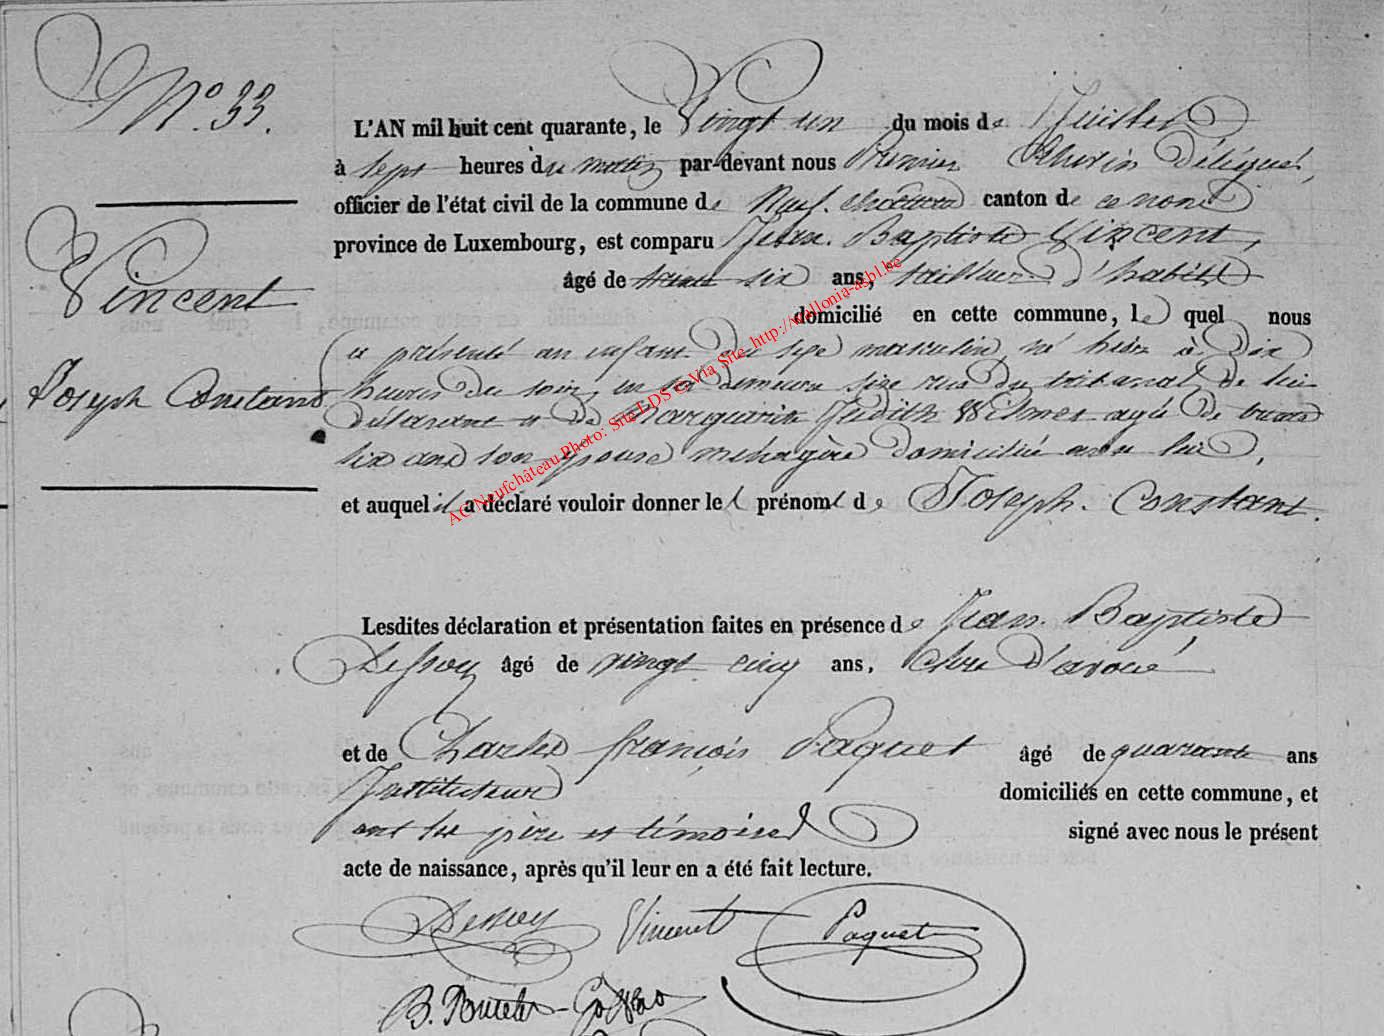 N.° 33.
Vincent
Joseph Constant
L'AN mil huit cent quarante, le Vingt un du mois de Juillet
à Sept heures du matin par-devant nous Premier Echevin délégué,
officier de l'état civil de la commune de Neufchateau canton de ce nom
province de Luxembourg, est comparu Jean Baptiste Vincent,
âgé de trente six ans, tailleur d'habits
domicilié en cette commune, le quel nous
a présenté un enfant du sexe masculin, né hier à dix
heures du soir, en sa demeure sise rue du tribunal, de lui
déclarant et de Marguerite Judith agée de trente
six ans son épouse ménagère domiciliée avec lui,
et auquel il a déclaré vouloir donner les prénoms de Joseph Constant.
Lesdites déclaration et présentation faites en présence de Jean Baptiste
Dessoy âgé de vingt cinq ans, clerc d'avoué
et de Charles françois Paquet âgé de quarante ans
Instituteur domiciliés en cette commune, et
ont les père et témoins signé avec nous le présent
acte de naissance, après qu'il leur en a été fait lecture.
Dessoy Vincent Paquet
AC Neufchâteau Photo: Site LDS © Via Site http://wallonia-asbl.be